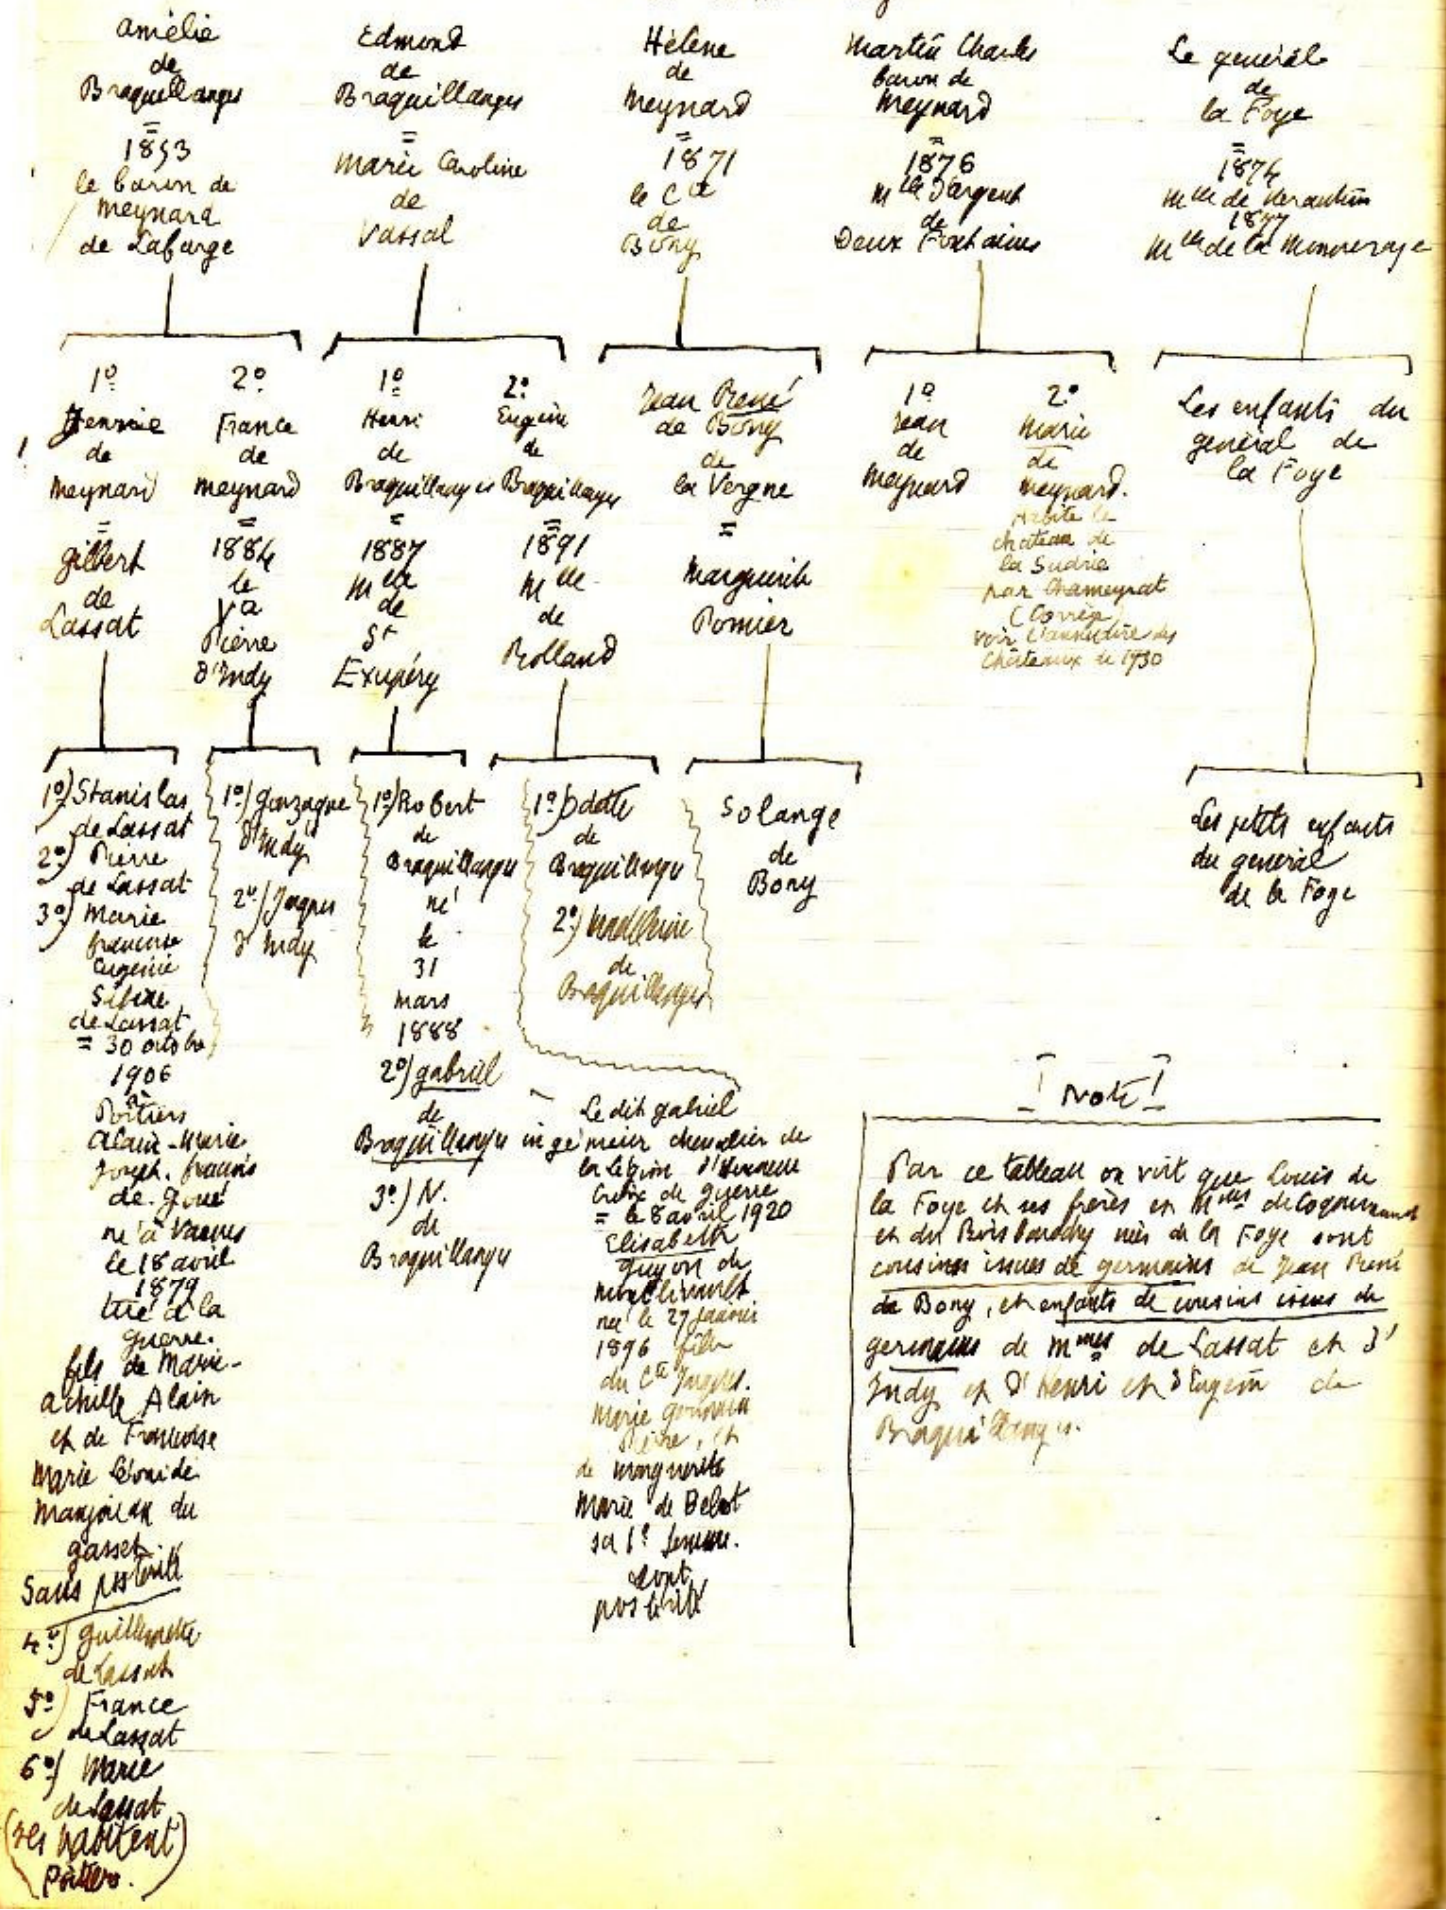 Amélie
de
Braquillanges
=
1853
le baron de
Meynard
de Labarge
Edmond
de
Braquillanges
=
Marie Caroline
de
Vassal
Hélène
de
Meynard
=
1871
le Cte
de
Bony
Martin Charles
baron de
Meynard
=
1876
Mlle d'argent
de
Deux Fontaines
Le général
de
la Foye
=
1874
Mlle de
1877
Mlle de la
1º
Jennie
de
Meynard
=
Gilbert
de
Lassat
2º
France
de
Meynard
=
1884
le
Vte
Pierre
d'Indy
1º
Henri
de
Braquillanges
=
1887
Mlle
de
St
Exupéry
2º
Eugène
de
Braquillanges
=
1891
Mlle
de
Rolland
Jean René
de Bony
de
la Vergne
=
Marguerite
Pomier
1º
Jean
de
Meynard
2º
Marie
de
Meynard.
Habite le
château de
la Sudrie
par Chameyrat
(Corrèze)
voir l'annuaire des
Châteaux de 1930
Les enfants du
général de
la Foye
1º) Stanislas
de Lassat
2º) Pierre
de Lassat
3º) Marie
françoise
Eugénie
de Lassat
= 30 octobre
1906
à
Poitiers
Alain-Marie
Joseph. françois
de. Goué
né à Vannes
le 18 avril
1879
tué à la
guerre.
fils de Marie-
Achille Alain
et de Françoise
Marie Léonide
du
gasset.
Sans postérité
4º) Guillemette
de Lassat
5º) France
de Lassat
6º) Marie
de Lassat
(Ils habitent)
Poitiers.
1º) Gonzague
d'Indy
2º) Jacques
d'Indy
1º) Robert
de
Braquillanges
né
le
31
mars
1888
2º) gabriel
de
Braquillanges
3º) N.
de
Braquillanges
1º) Odette
de
Braquillanges
2º) Madeleine
de
Braquillanges
Le dit gabriel
ingénieur chevalier de
la légion d'honneur
Croix de guerre
= le 8 avril 1920
Elisabeth
guyon de
née le 27 janvier
1896 fille
du Cte Jacques.
Marie
Pierre, et
de Marguerite
Marie de Belot
sa 1º femme.
dont
postérité
Solange
de
Bony
Les petits enfants
du général
de la Foye
Note!
Par ce tableau on voit que Louis de
la Foye et ses frères et Mmes de
et du nées de la Foye sont
cousins issus de germains de Jean René
de Bony, et enfants de cousins issus de
germains de Mmes de Lassat et d'
Indy et d'Henri et d'Eugène de
Braquillanges.